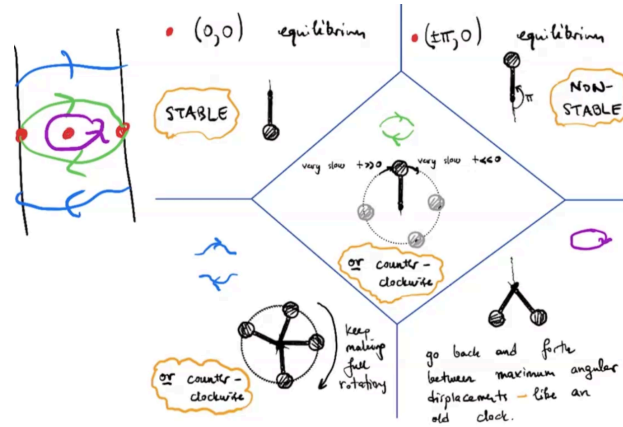 (0,0) equilibrium
STABLE
(±π,0) equilibrium
π
NON-
STABLE
very slow t≫0 very slow t≪0
or counter-
clockwise
keep
making
full
rotation
or counter-
clockwise
go back and forth
between maximum angular
displacements — like an
old clock.